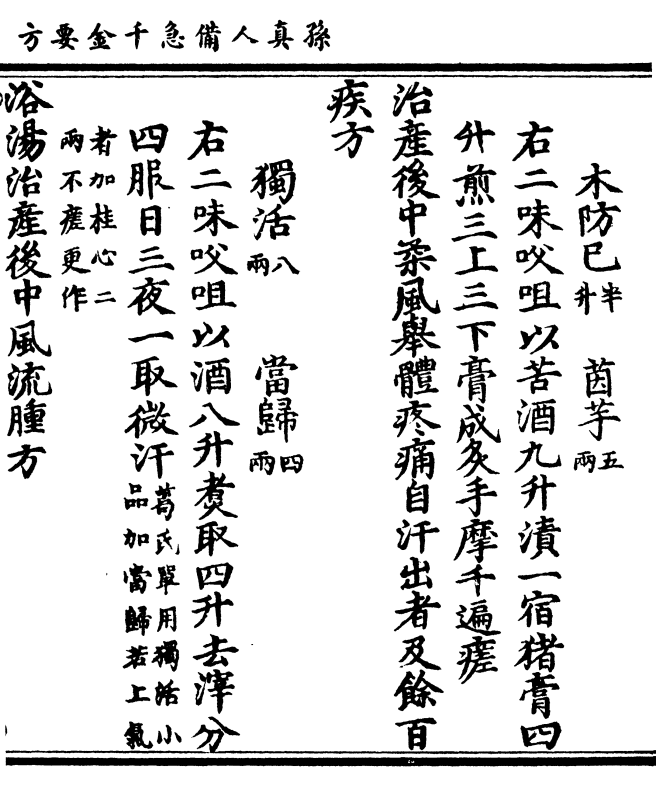 孫真人備急千金要方
木防巳半升 茵芋五兩
右二味㕮咀以苦酒九升漬一宿猪膏四
升煎三上三下膏成炙手摩千遍瘥
治產後中柔風舉體疼痛自汗出者及餘百
疾方
獨活八兩 當歸四兩
右二味㕮咀以酒八升煑取四升去滓分
四服日三夜一取微汗葛氏單用獨活小品加當歸若上氣
者加桂心二兩不瘥更作
浴湯治產後中風流腫方